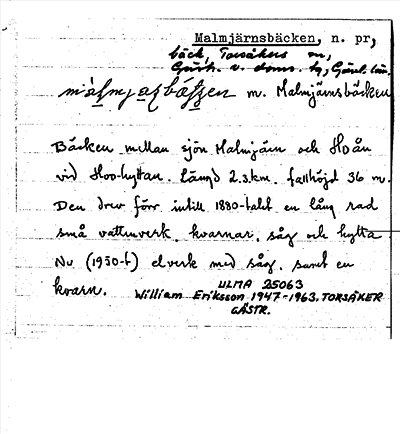 Malmjärnsbäcken, n. pr,
bäck, Torsåkers sn,
Gästr. v. doms. tg, Gävleb. län.
m. Malmjärnsbäcken
Bäcken mellan sjön Malmjärn och Hoån
vid Hoo-hyttan. Längd 2.3 km. fallhöjd 36 m.
Den drev förr intill 1880-talet en lång rad
små vattenverk, kvarnar, såg och hytta.
Nu (1950-t) elverk med såg. samt en
kvarn.
ULMA 25063
William Eriksson 1947-1963. TORSÅKER
GÄSTR.